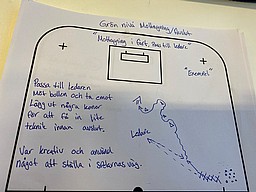 Grön nivå Mottagning/Avslut.
"Mottagning i fart, Pass till ledare"
"Exempel"
Passa till ledaren
Möt bollen och ta emot
Lägg ut några koner
för att få in lite
teknik innan avslut.
Ledare
Var kreativ och använd
något att ställa i
väg.